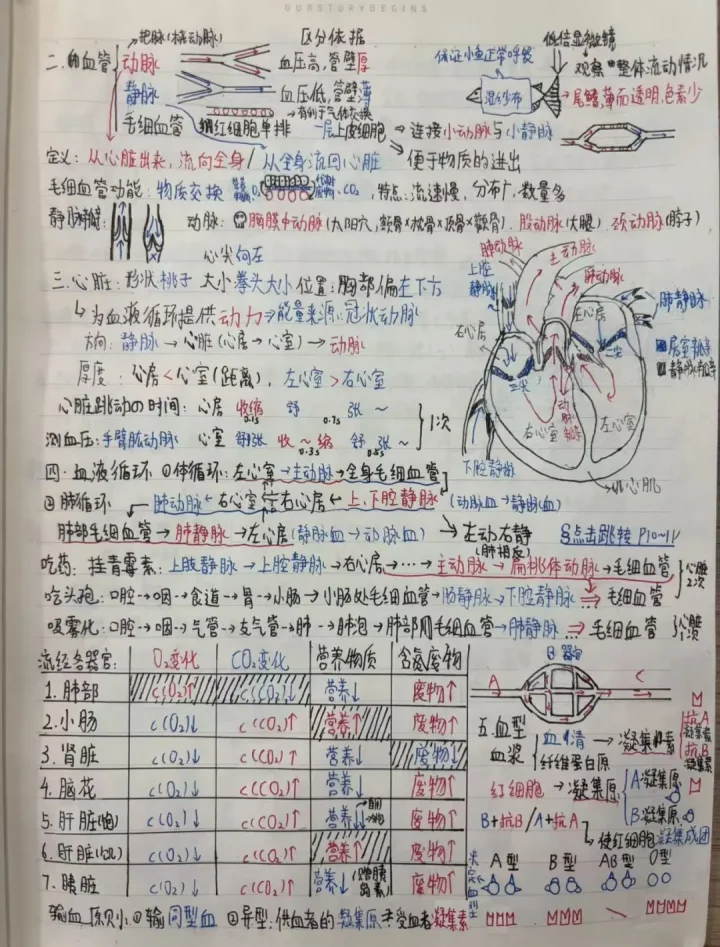 OURSTORYBEGINS
把脉(桡动脉) 区分依据 低倍显微镜
二.血管 动脉 血压高,管壁厚 保证小鱼正常呼吸 观察 整体流动情况
静脉 血压低,管壁薄 湿纱布 尾鳍,薄而透明,色素少
有利于气体交换
毛细血管 红细胞单排 一层上皮细胞 → 连接小动脉与小静脉
定义:从心脏出来,流向全身/从全身流回心脏 便于物质的进出
毛细血管功能:物质交换 CO₂,特点:流速慢,分布广,数量多
静脉瓣: 动脉: 动脉(太阳穴,额骨×枕骨×顶骨×颧骨).股动脉(大腿).颈动脉(脖子)
心尖向左
三.心脏:形状桃子 大小拳头大小 位置:胸部偏左下方
↳为血液循环提供动力⇒能量来源:冠状动脉
方向:静脉→心脏(心房→心室)→动脉
厚度:心房<心室(距离),左心室>右心室
心脏跳动の时间:心房 收缩 0.1s 舒 0.7s 张 ~ 1次
测血压:手臂肱动脉 心室 舒张 收~缩 0.3s 舒 0.5s 张~
肺动脉 主动脉 肺动脉
上腔静脉 肺静脉
右心房 左心房
三尖 二尖 动脉瓣
右心室 左心室
下腔静脉 心肌
四.血液循环 ①体循环:左心室→主动脉→全身毛细血管
②肺循环 肺动脉←右心室←右心房←上、下腔静脉 (动脉血→静脉血)
肺部毛细血管→肺静脉→左心房(静脉血→动脉血) →左动右静 (肺相反) §点击跳转 P10~11
吃药:挂青霉素:上肢静脉→上腔静脉→右心房→…→主动脉→扁桃体动脉→毛细血管 心脏2次
吃头孢:口腔→咽→食道→胃→小肠→小肠处毛细血管→肠静脉→下腔静脉⇒毛细血管
吸雾化:口腔→咽→气管→支气管→肺→肺泡→肺部毛细血管→肺静脉⇒毛细血管 1次心脏
流经各器官: O₂变化 CO₂变化 营养物质 含氮废物
1.肺部 c(O₂)↑ c(CO₂)↓ 营养↓ 废物↑
2.小肠 c(O₂)↓ c(CO₂)↑ 营养↑ 废物↑
3.肾脏 c(O₂)↓ c(CO₂)↑ 营养↓ 废物↓
4.脑花 c(O₂)↓ c(CO₂)↑ 营养↓ 废物↑
5.肝脏(饱) c(O₂)↓ c(CO₂)↑ 营养↓ 废物↑
6.肝脏(饥) c(O₂)↓ c(CO₂)↑ 营养↑ 废物↑
7.胰脏 c(O₂)↓ c(CO₂)↑ 营养↓(胰岛素) 废物↑
A B 器官 C
五.血型
血浆 血清 → 凝集素 抗A凝集素 抗B凝集素
纤维蛋白原
红细胞 → 凝集原 A凝集原
B凝集原
B+抗B/A+抗A
↳使红细胞凝集成团
A型 B型 AB型 O型
输血原则:①输同型血 ②异型:供血者的凝集原 受血者凝集素